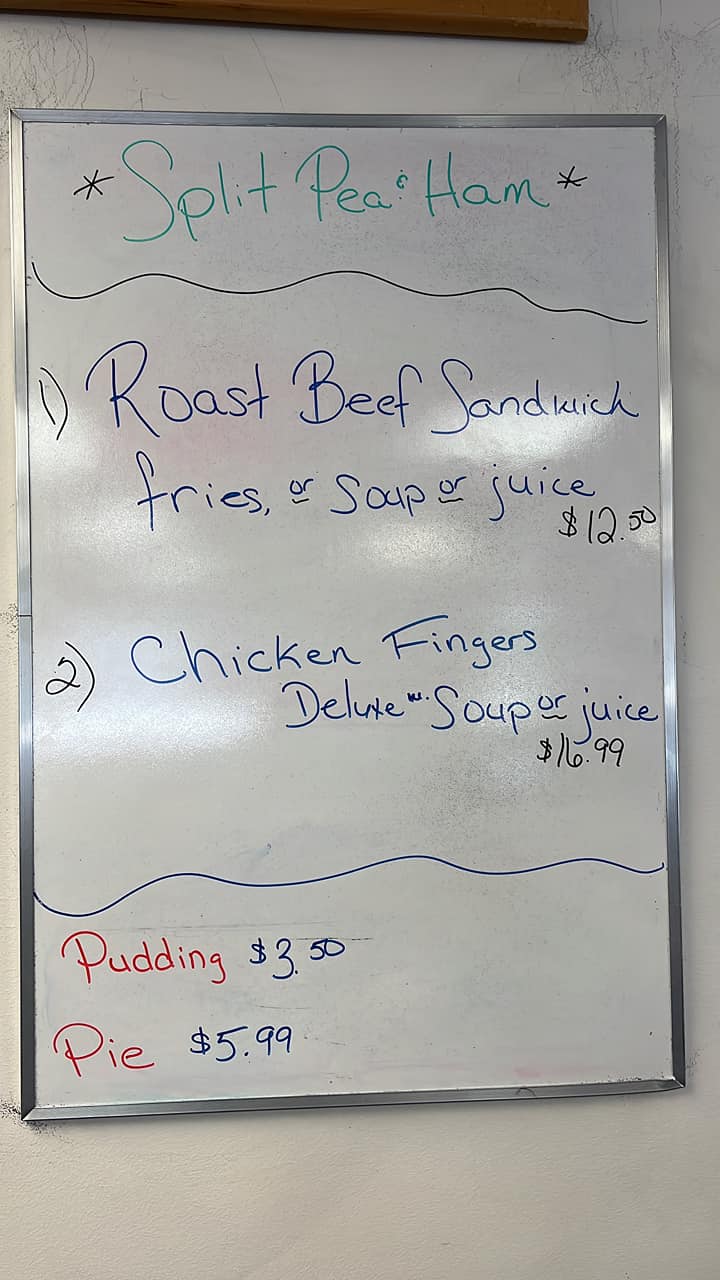 * Split Pea & Ham *
1) Roast Beef Sandwich
fries, or Soup or juice
$12.50
2) Chicken Fingers
Deluxe w. Soup or juice
$16.99
Pudding $3.50
Pie $5.99